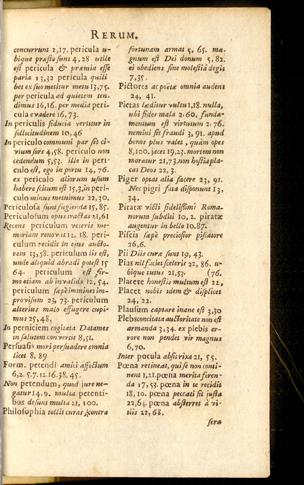 RERUM.
concurrunt 2,17. pericula u-
bique præsto sunt 4,28 utile
est pericula & præmia esse
paria 13,32 pericula quili
bet ex suo metitur metu 13,75.
per pericula ad quietem ten-
dimus 16,16. per media peri-
cula evadere 16,73.
In periculis fiducia vertitur in
sollicitudinem 10,46
In periculo communi par sit ci-
vium sors 4,58. periculo non
cedendum 5,53. ille in peri-
culo est, ego in porcu 14, 76.
ex periculo alterum usum
habere
culo minus metuimus 22,30.
Periculosa sunt fugienda 15,85.
Periculosum opus 21,61
Recens periculum veteris me-
moriam renovat 12, 18. peri-
culum recidit in ejus aucto-
rem 13,58. periculum ibi est,
unde aliquid abradi potest 15
64. periculum est fir-
motiem ab invalidis 12, 54.
periculum sæpè imminet im-
provisum 23, 73. periculum
alterius malo effugere cupi-
mus 25,48,
In perniciem cogitata Datames
in salutem convertit 8,51.
Persuasus mori persuadere omnia
licet 8, 89
Form. petendi amici afflictum
6,2. 5.7. 12.16.38. 45.
Non petendum, quod jure ne-
gatur 14,9. multa petenti-
bus desunt multa 21, 100.
Philosophia tollit curas contra
fortunam armat 5, 65. ma-
gnum est Dei donum 5, 82.
ei obediens sine molestiâ degis
7,35.
Pictores ac poëtæ omnia audent
24, 41.
Pietas læditur vultu 1,18. nulla,
ubi fides mala 2.60. funda-
mentum est virtutum 2.76.
nemini sit fraudi 3, 91. apud
bonos plus valet, quàm opes
8,100. iacet 19,23. mortem non
moratur 21,73. non hostia pla-
cat Deos 22,3.
Piger opus alia facere 23, 91.
Nec pigri fata disponunt 13,
34.
Piratæ vilis fidelissimi Roma-
norum subditi 10,2. piratæ
augentur in bello 10.87.
Piscis sæpè preciosior piscatore
26,6.
Pii Diis curæ sunt 19, 43.
Pias nil facies sceleris 22, 86. u-
bique tutus 21,53. (76.
Placere honestis multum est 22,
Placet nobis idem & displicet
24, 22.
Plausum captare inane est 3,30
Plebs concitata auctoritate non est
armanda 3,34. ex plebis er-
rore non pendet vir magnus
6,70.
Inter pocula abscrixa 21, 55.
Pœna retineat, qui se non conti-
nent 1,21. pœna merita feren-
da 17, 53. pœna in te recidit
18, 10. pœna peccati sit justa
22,64. pœna absterret à vi-
tiis 22, 68.
sera